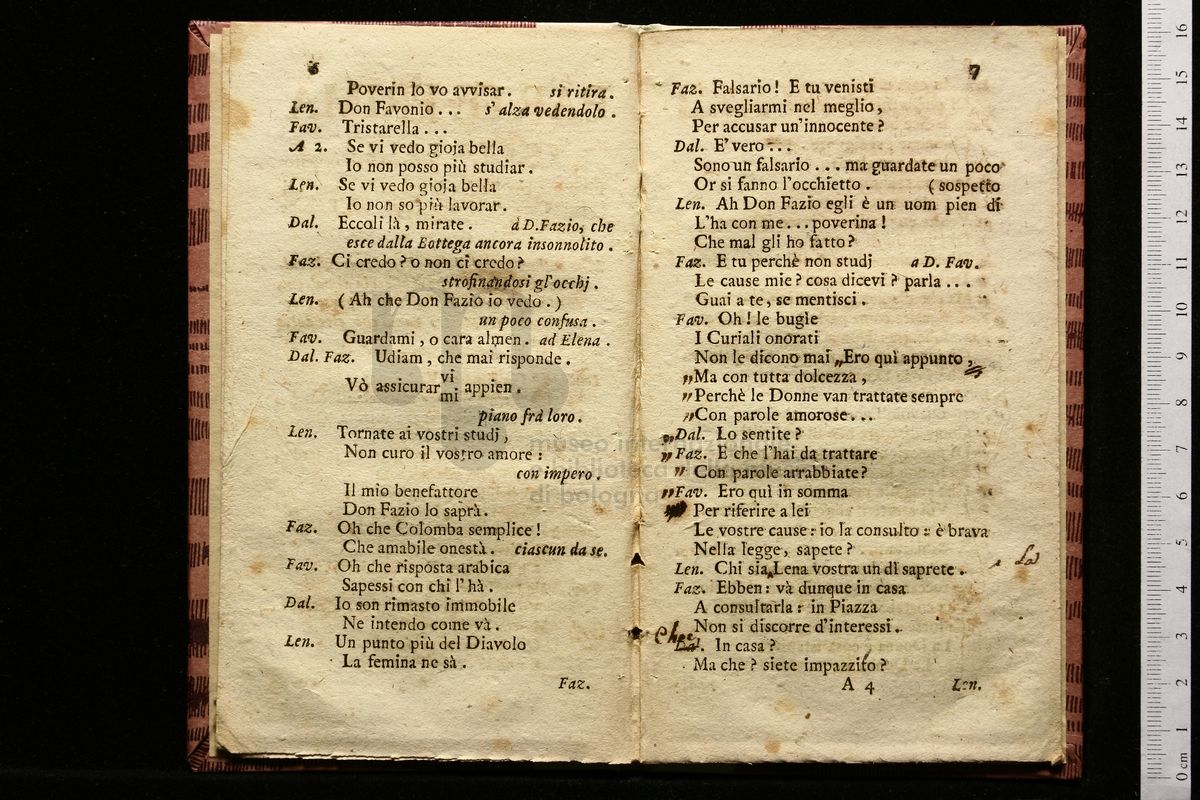 6
Poverin lo vo avvisar. si ritira.
Len. Don Favonio... s'alza vedendolo.
Fav. Tristarella...
A 2. Se vi vedo gioja bella
Io non posso più studiar.
Len. Se vi vedo gioja bella
Io non so più lavorar.
Dal. Eccoli là, mirate. a D.Fazio, che
esce dalla Bottega ancora insonnolito.
Faz. Ci credo? o non ci credo?
strofinandosi gl'occhj.
Len. (Ah che Don Fazio io vedo.)
un poco confusa.
Fav. Guardami, o cara almen. ad Elena.
Dal. Faz. Udiam, che mai risponde.
Vò assicurar vi mi appien.
piano frà loro.
Len. Tornate ai vostri studj,
Non curo il vostro amore:
con impero.
Il mio benefattore
Don Fazio lo saprà.
Faz. Oh che Colomba semplice!
Che amabile onestà. ciascun da se.
Fav. Oh che risposta arabica
Sapessi con chi l'hà.
Dal. Io son rimasto immobile
Ne intendo come và.
Len. Un punto più del Diavolo
La femina ne sà.
Faz.
7
Faz. Falsario! E tu venisti
A svegliarmi nel meglio,
Per accusar un'innocente?
Dal. E' vero...
Sono un falsario... ma guardate un poco
Or si fanno l'occhietto. (sospetto
Len. Ah Don Fazio egli è un uom pien di
L'ha con me... poverina!
Che mal gli ho fatto?
Faz. E tu perchè non studj a D. Fav.
Le cause mie? cosa dicevi? parla...
Guai a te, se mentisci.
Fav. Oh! le bugìe
I Curiali onorati
Non le dicono mai „Ero quì appunto,
„Ma con tutta dolcezza,
„Perchè le Donne van trattate sempre
„Con parole amorose...
„Dal. Lo sentite?
„Faz. E che l'hai da trattare
„Con parole arrabbiate?
„Fav. Ero quì in somma
Per riferire a lei
Le vostre cause: io la consulto: è brava
Nella legge, sapete?
Len. Chi sia Lena vostra un dì saprete. La
Faz. Ebben: và dunque in casa
A consultarla: in Piazza
Non si discorre d'interessi.
Dal. In casa?
Ma che? siete impazzito?
A 4 Len.
museo internazionale
biblioteca della musica
di bologna